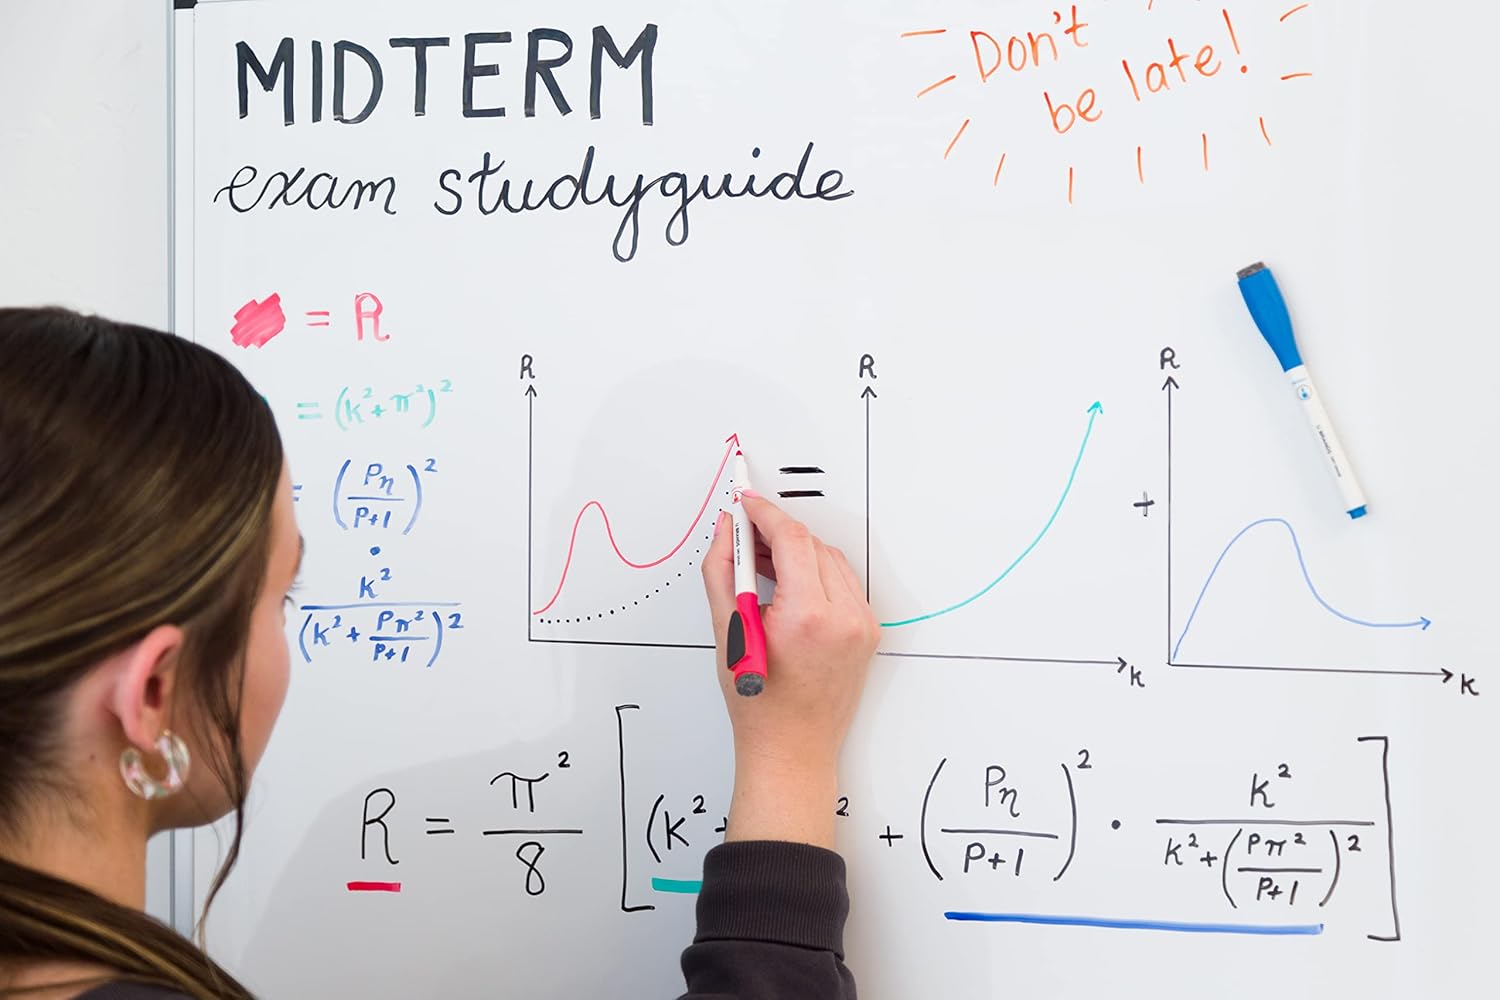 MIDTERM
exam studyguide
Don't
be late!
= R
= (k²+π²)²
= (Pη/P+1)²
•
k²/(k² + Pπ²/P+1)²
R
R
R
=
+
k
k
R = π²/8 [(k²+ ² + (Pη/P+1)² • k²/k²+(Pπ²/P+1)²]